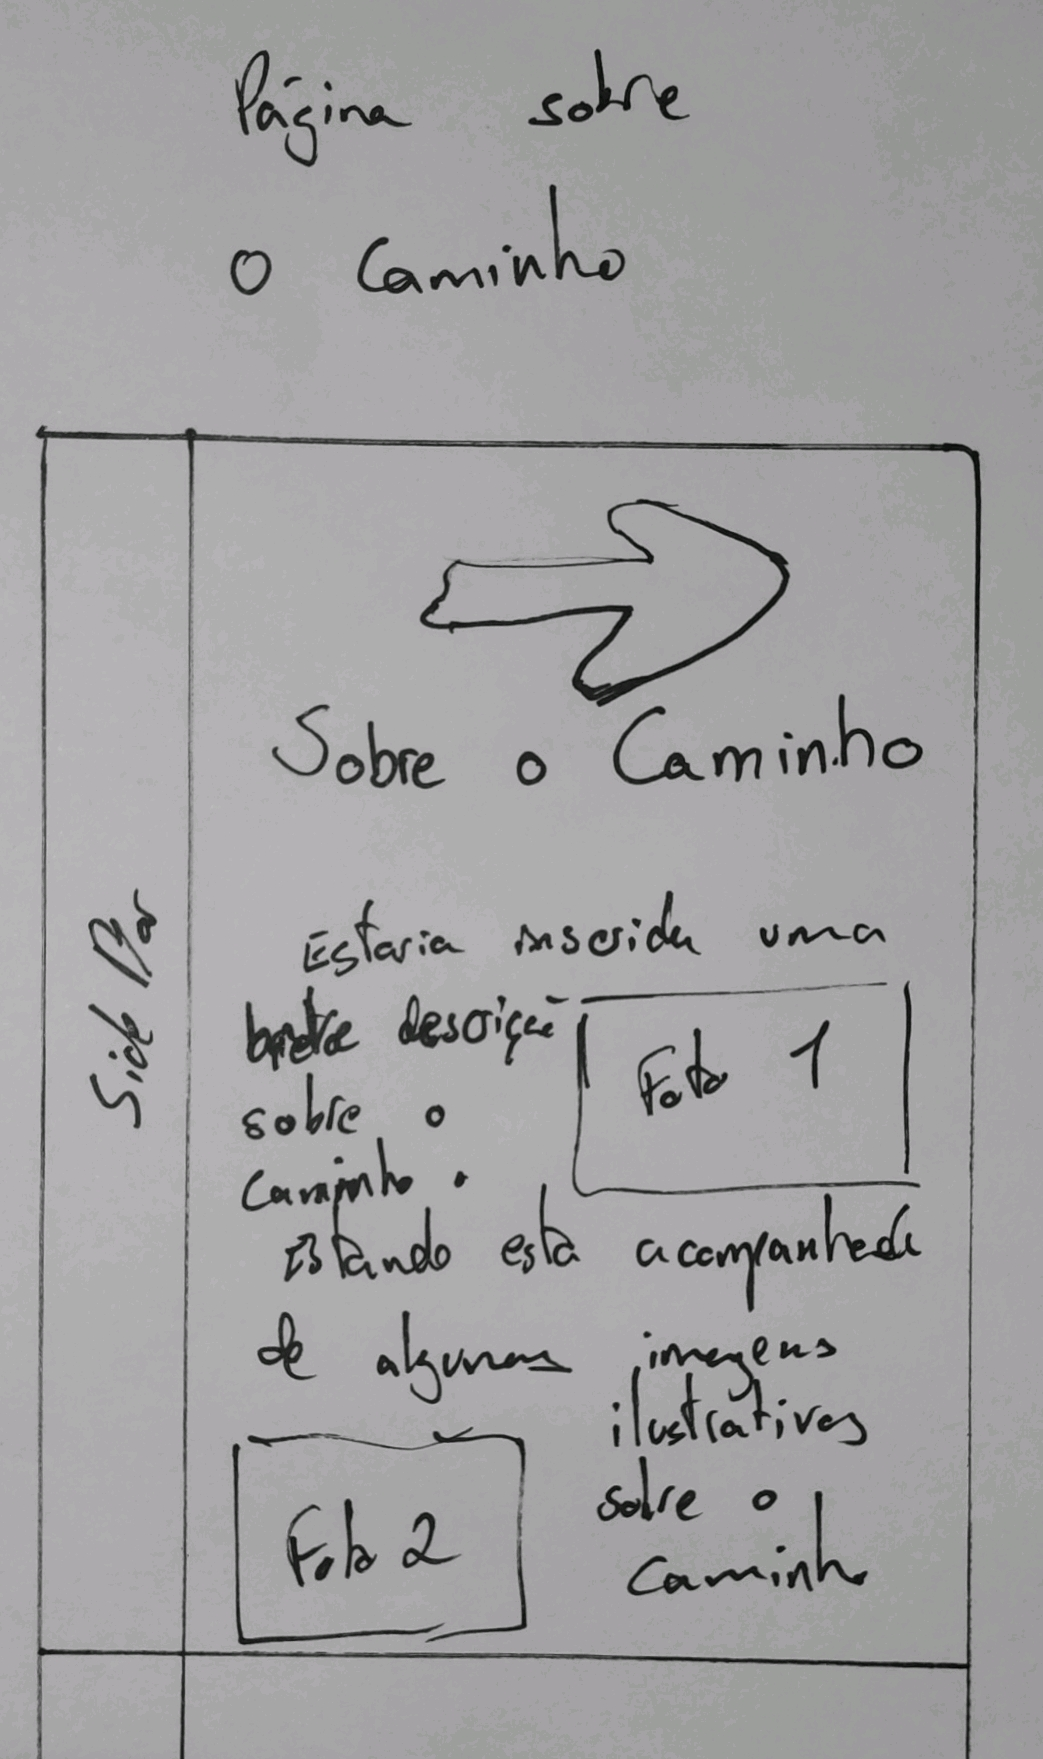 Página sobre
o Caminho
Side Bar
Sobre o Caminho
Estaria inserida uma
breve descrição
Foto 1
sobre o
caminho.
Estando esta acompanhada
de algumas imagens
ilustrativas
Foto 2
sobre o
caminho